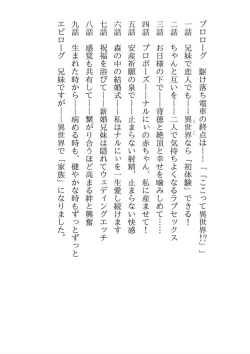 プロローグ　駆け落ち電車の終点は――「「ここって異世界!?」」
一話　兄妹で恋人でも――異世界なら「初体験」できる！
二話　ちゃんと互いを――二人で気持ちよくなるラブセックス
三話　お日様の下で――背徳と絶頂と幸せを噛みしめて……
四話　プロポーズ――ナルにぃの赤ちゃん、私に産ませて！
五話　安産祈願の泉で――止まらない射精、止まらない快感
六話　森の中の結婚式――私はナルにぃを一生愛し続けます
七話　祝福を浴びて――新婚兄妹は隠れてウェディングエッチ
八話　感覚も共有して――繋がり合うほど高まる絆と興奮
九話　生まれた時から――病める時も、健やかな時もずっとずっと
エピローグ　兄妹ですが――異世界で「家族」になりました。